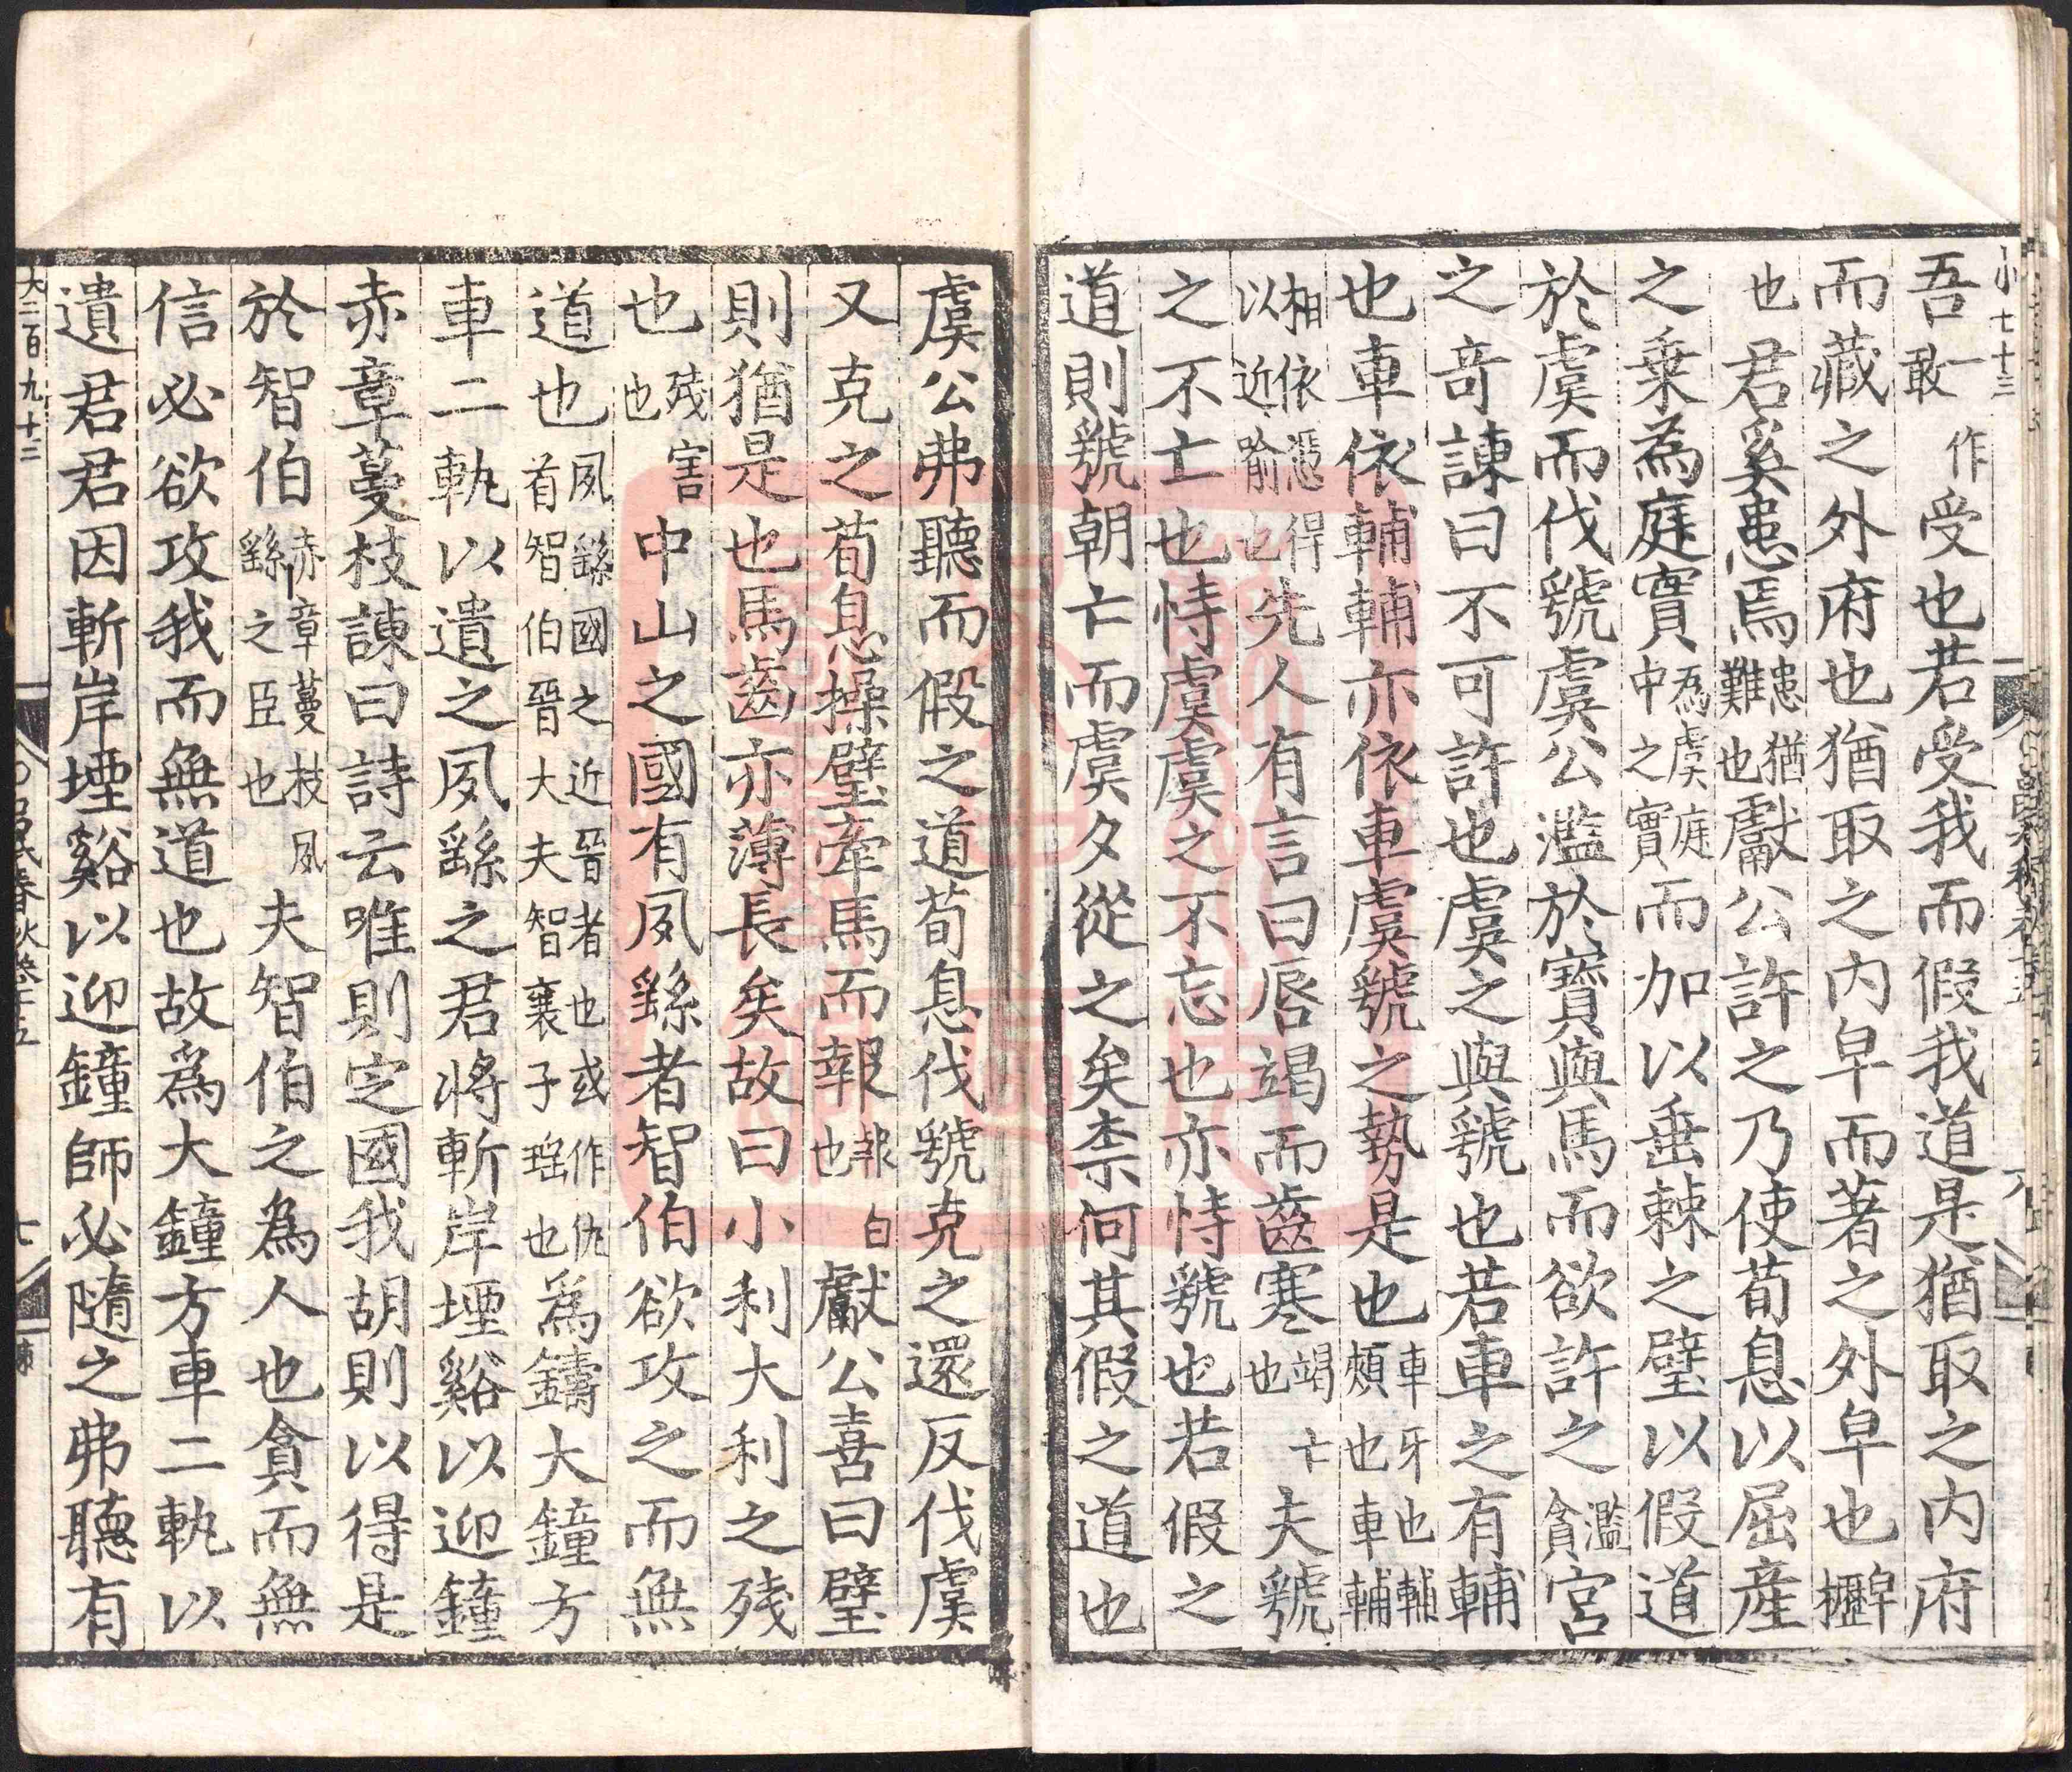 小七十三
吾一作敢受也若受我而假我道是猶取之内府
而藏之外府也猶取之内皁而著之外皁也皁櫪
也君奚患焉患猶難也獻公許之乃使荀息以屈產
之乗為庭實為虞庭中之實而加以垂棘之璧以假道
於虞而伐虢虞公濫於寳與馬而欲許之濫貪宮
之竒諫曰不可許也虞之與虢也若車之有輔
也車依輔輔亦依車虞虢之勢是也車牙也輔頰也車輔
相依憑得以近喻也先人有言曰唇竭而齒寒竭亡也夫虢
之不亡也恃虞虞之不忘也亦恃虢也若假之
道則虢朝亡而虞夕從之矣柰何其假之道也
虞公弗聽而假之道荀息伐虢克之還反伐虞
又克之荀息操璧牽馬而報報白也獻公喜曰璧
則猶是也馬齒亦薄長矣故曰小利大利之殘
也殘害也中山之國有夙繇者智伯欲攻之而無
道也夙繇國之近晉者也或作仇酋智伯晉大夫智襄子瑤也為鑄大鐘方
車二軌以遺之夙繇之君將斬岸堙谿以迎鐘
赤章蔓枝諫曰詩云唯則定國我胡則以得是
於智伯赤章蔓枝夙繇之臣也夫智伯之為人也貪而無
信必欲攻我而無道也故為大鐘方車二軌以
遺君君因斬岸堙谿以迎鐘師必隨之弗聽有
大二百九十三
吕氏春秋卷十五
七